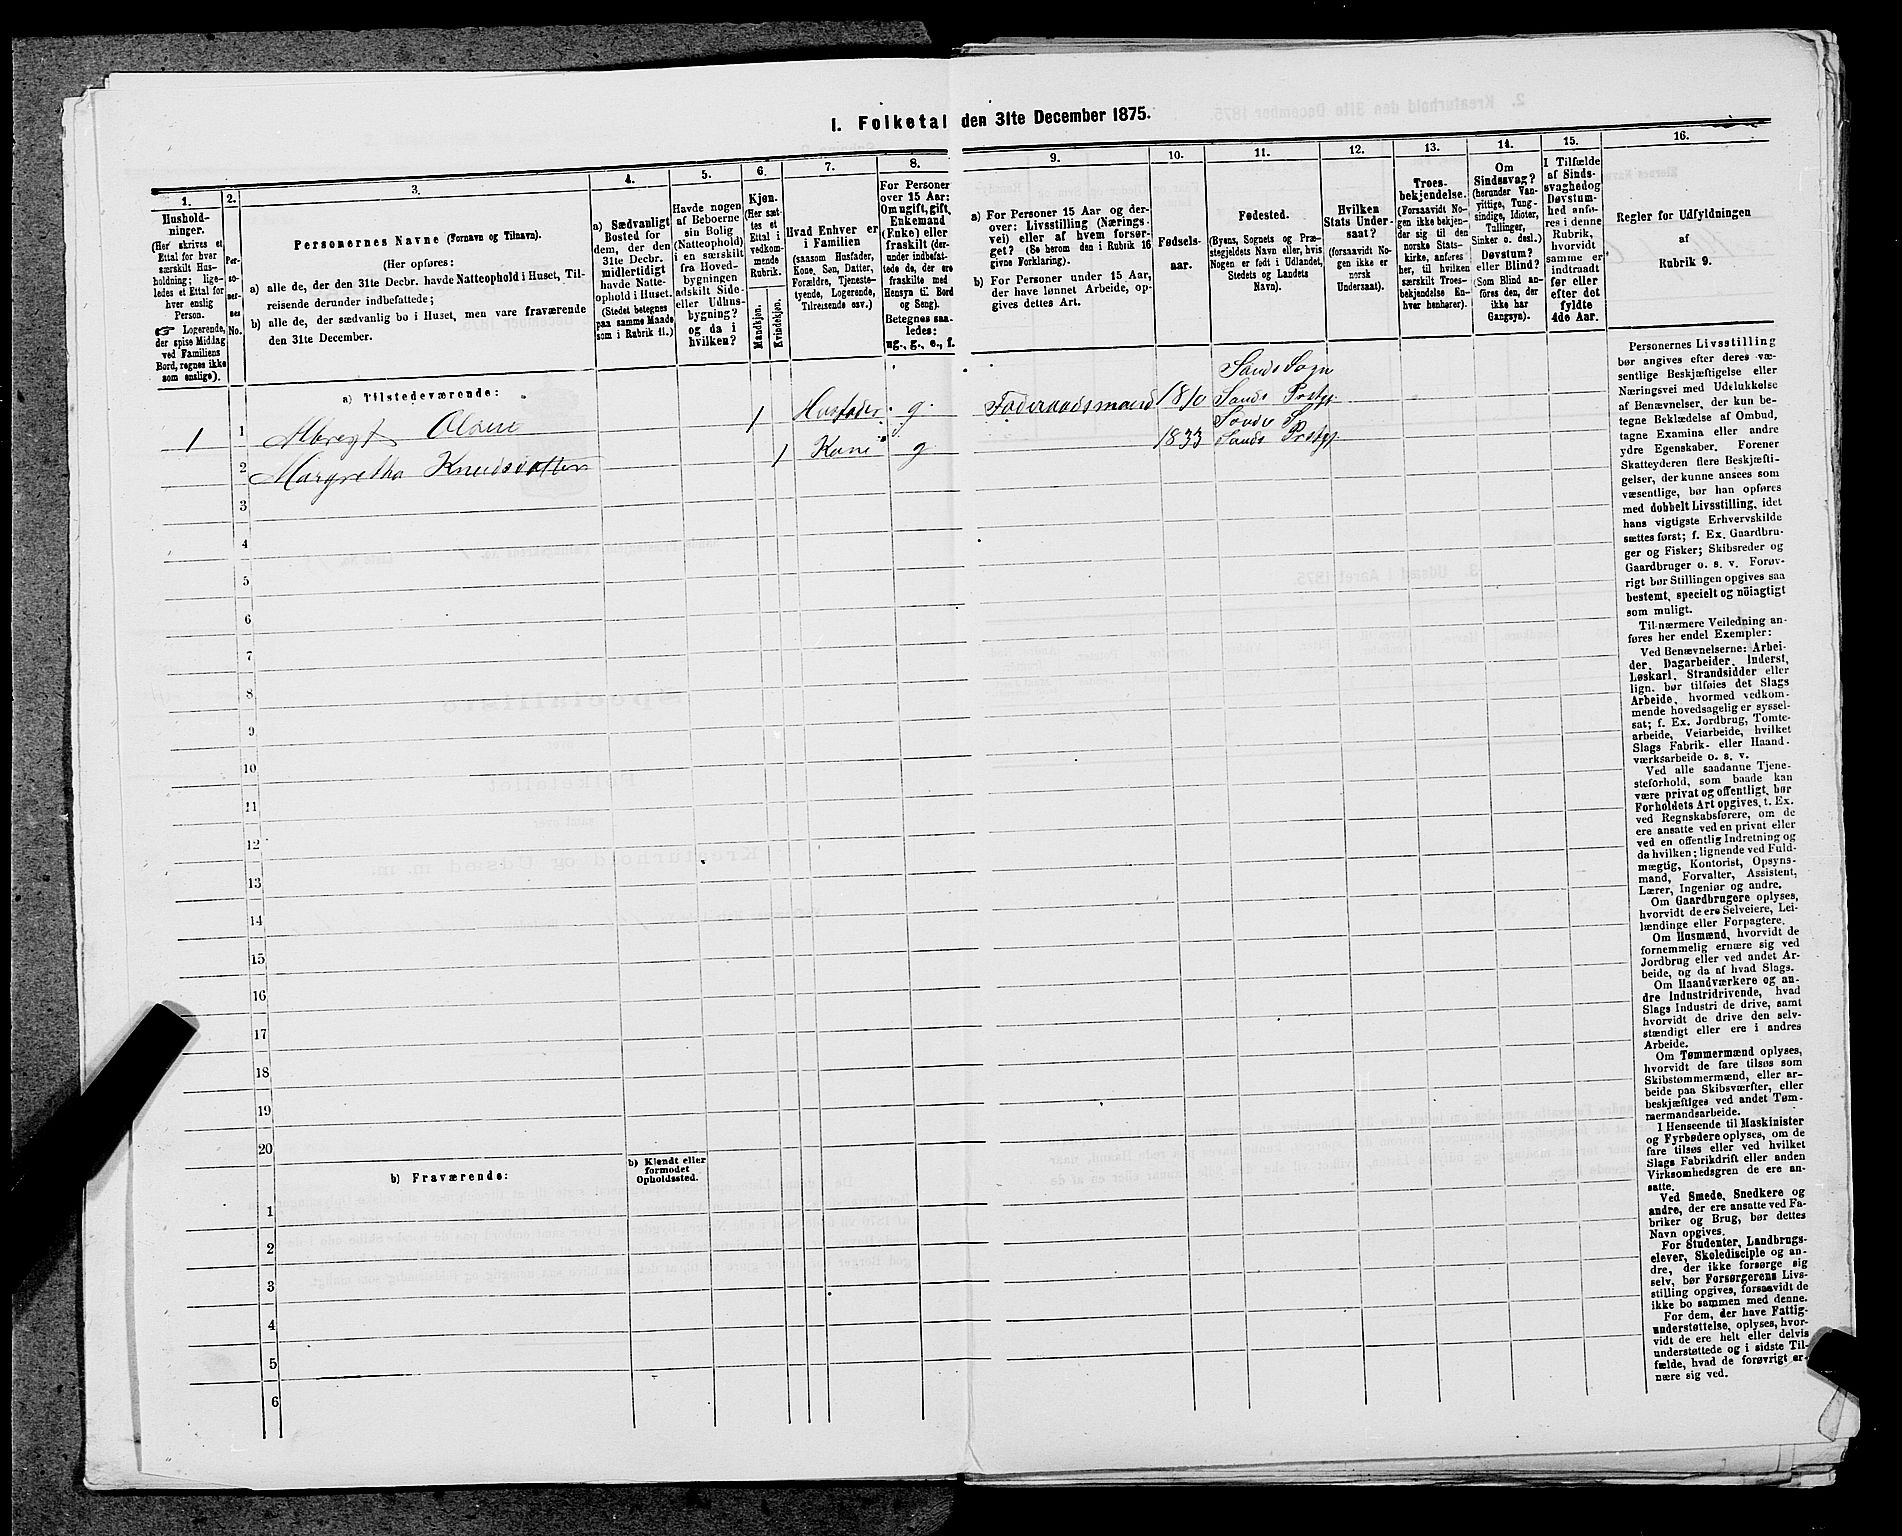 I. Folketal den 31te December 1875.
1.
Husholdninger.
(Her skrives et
Ettal for hver
særskilt Husholdning;
ligeledes et Ettal for
hver enslig
Person.
☞ Logerende,
der spise Middag
ved Familiens
Bord, regnes ikke
som enslige).
2.
Personernes
No.
3.
Personernes Navne (Fornavn og Tilnavn).
(Her opføres:
a) alle de, der den 31te Decbr. havde Natteophold i Huset, Tilreisende derunder indbefattede;
b) alle de, der sædvanlig bo i Huset, men vare fraværende
den 31te December.
4.
a) Sædvanligt
Bosted for
dem, der den
31te Decbr.
midlertidigt
havde Natteophold i Huset.
(Stedet betegnes
paa samme Maade
som i Rubrik 11.)
5.
Havde nogen
af Beboerne
sin Bolig
(Natteophold)
i en særskilt
fra Hovedbygningen
adskilt Side-
eller Udhusbygning?
og da i
hvilken?
6.
Kjøn.
(Her sættes et
Ettal i
vedkommende
Rubrik.
Mandkjøn.
Kvindekjøn.
7.
Hvad Enhver er
i Familien
(saasom Husfader,
Kone, Søn, Datter,
Forældre, Tjenestetyende, Logerende,
Tilreisende osv.)
8.
For Personer
over 15 Aar:
Om ugift, gift,
Enkemand
(Enke) eller
fraskilt (derunder indbefattede de, der ere
fraskilte med
Hensyn til Bord
og Seng).
Betegnes saaledes:
ug., g., e., f.
9.
a) For Personer 15 Aar og derover: Livsstilling (Næringsvei) eller af hvem forsørget? (Se herom den i Rubrik 16
givne Forklaring).
b) For Personer under 15 Aar,
der have lønnet Arbeide, opgives dettes Art.
10.
Fødselsaar.
11.
Fødested.
(Byens, Sognets og Præstegjeldets Navn eller, hvis
Nogen er født i Udlandet,
Stedets og Landets
Navn).
12.
Hvilken
Stats Undersaat?
(forsaavidt Nogen ikke er
norsk
Undersaat).
13.
Troesbekjendelse.
(Forsaavidt Nogen ikke bekjender sig til den
norske Statskirke, anføres
her, til hvilken
særskilt Troesbekjendelse Enhver henhører).
14.
Om
Sindssvag?
(herunder Vanvittige, Tungsindige, Idioter,
Tullinger,
Sinker o. desl.)
Døvstum?
eller Blind?
(Som Blind anføres den, der
ikke har
Gangsyn).
15.
I Tilfælde
af Sindssvaghed og
Døvstumhed anføres i denne
Rubrik,
hvorvidt
samme er
indtraadt
før eller
efter det
fyldte
4de Aar.
16.
Regler for Udfyldningen
af
Rubrik 9.
a) Tilstedeværende:
1 1 Albregt Olsen 1 Husfader g. Føderaadsmand 1810 Sands Sogn
Sands Prstgj
2 Margretha Knudsdatter 1 Kone g 1833 Sands S
Sands Prstgj
3
4
5
6
7
8
9
10
11
12
13
14
15
16
17
18
19
20
b) Fraværende:
b) Kjendt eller
formodet
Opholdssted.
1
2
3
4
5
6
Personernes Livsstilling
bør angives efter deres væsentlige Beskjæftigelse eller
Næringsvei med Udelukkelse
af Benævnelser, der kun betegne Beklædelse af Ombud,
tagne Examina eller andre
ydre Egenskaber. Forener
Skatteyderen flere Beskjæftigelser, der kunne ansees som
væsentlige, bør han opføres
med dobbelt Livsstilling, idet
hans vigtigste Erhvervskilde
sættes først; f. Ex. Gaardbruger og Fisker; Skibsreder og
Gaardbruger o. s. v. Forøvrigt bør Stillingen opgives saa
bestemt, specielt og nöiagtigt
som muligt.
Til nærmere Veiledning anføres her endel Exempler:
Ved Benævnelserne: Arbeider, Dagarbeider, Inderst,
Løskarl, Strandsidder eller
lign. bør tilføies det Slags
Arbeide, hvormed vedkommende hovedsagelig er sysselsat; f. Ex. Jordbrug, Tomtearbeide, Veiarbeide, hvilket
Slags Fabrik- eller Haandværksarbeide o. s. v.
Ved alle saadanne Tjenesteforhold, som baade kan
være privat og offentligt, bør
Forholdets Art opgives, t. Ex.
ved Regnskabsførere, om de
ere ansatte ved en privat eller
ved en offentlig Indretning og
da hvilken; lignende ved Fuldmægtig, Kontorist, Opsynsmand, Forvalter, Assistent,
Lærer, Ingeniør og andre.
Om Gaardbrugere oplyses,
hvorvidt de ere Selveiere, Leilændinge eller Forpagtere.
Om Husmænd, hvorvidt de
fornemmelig ernære sig ved
Jordbrug eller ved andet Arbeide, og da af hvad Slags.
Om Haandværkere og andre Industridrivende, hvad
Slags Industri de drive, samt
hvorvidt de drive den selvstændigt eller ere i andres
Arbeide.
Om Tømmermænd oplyses,
hvorvidt de fare tilsøs som
Skibstømmermænd, eller arbeide paa Skibsværfter, eller
beskjæftiges ved andet Tømmermandsarbeide.
I Henseende til Maskinister
og Fyrbødere oplyses, om de
fare tilsøs eller ved hvilket
Slags Fabrikdrift eller anden
Virksomhedsgren de ere ansatte.
Ved Smede, Snedkere og
andre, der ere ansatte ved Fabriker og Brug, bør dettes
Navn opgives.
For Studenter, Landbrugselever, Skoledisciple og andre, der ikke forsørge sig
selv, bør Forsørgerens Livsstilling opgives, forsaavidt de
ikke bo sammen med denne.
For dem, der have Fattigunderstøttelse, oplyses, hvorvidt de ere helt eller delvis
understøttede og i sidste Tilfælde, hvad de forøvrigt ernære sig ved.